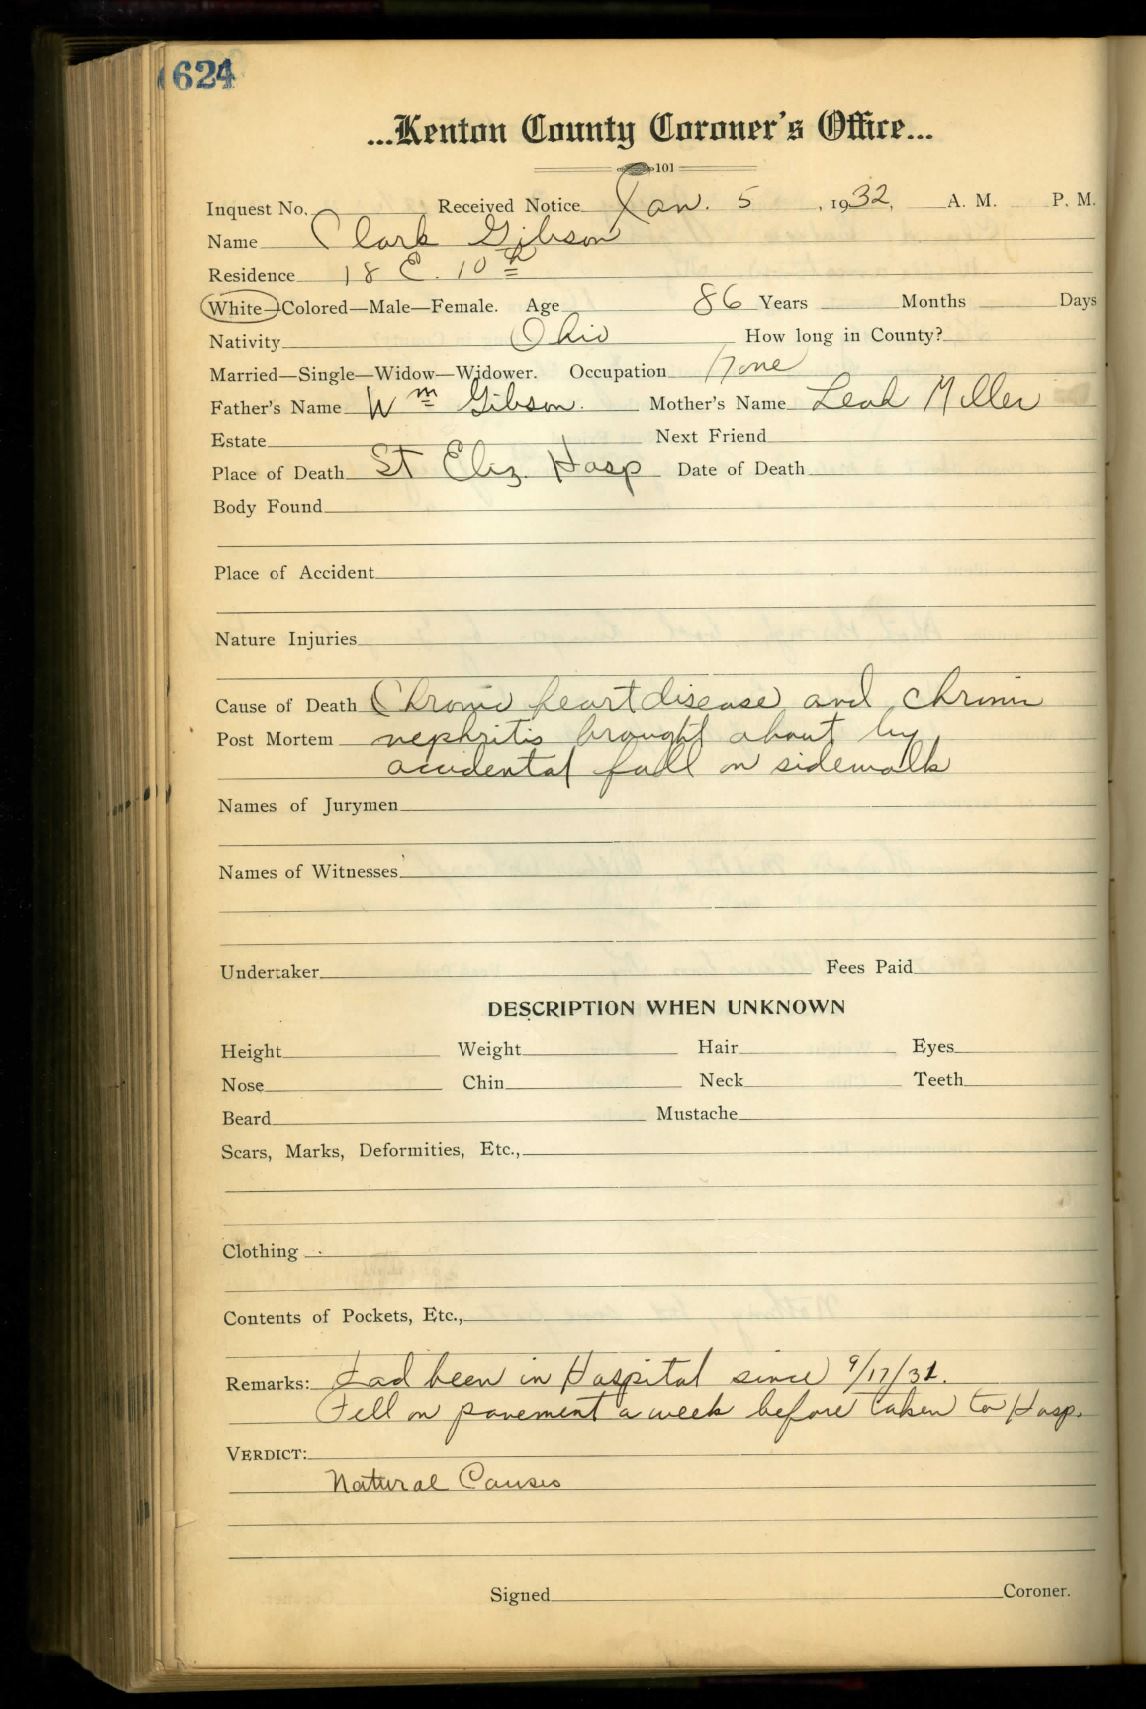 624
...Kenton County Coroner's Office...
101
Inquest No. Received Notice Jan. 5, 1932, A. M. P. M.
Name Clark Gibson
Residence 18 E. 10th
White—Colored—Male—Female. Age 86 Years Months Days
Nativity Ohio How long in County?
Married—Single—Widow—Widower. Occupation None
Father's Name Wm Gibson. Mother's Name Leah Miller
Estate Next Friend
Place of Death St Eliz. Hosp Date of Death
Body Found
Place of Accident
Nature Injuries
Cause of Death Chronic heart disease and chronic
Post Mortem nephritis brought about by
accidental fall on sidewalk
Names of Jurymen
Names of Witnesses
Undertaker Fees Paid
DESCRIPTION WHEN UNKNOWN
Height Weight Hair Eyes
Nose Chin Neck Teeth
Beard Mustache
Scars, Marks, Deformities, Etc.,
Clothing
Contents of Pockets, Etc.,
Remarks: Had been in Hospital since 9/17/31.
Fell on pavement a week before taken to Hosp.
VERDICT:
Natural Causes
Signed Coroner.